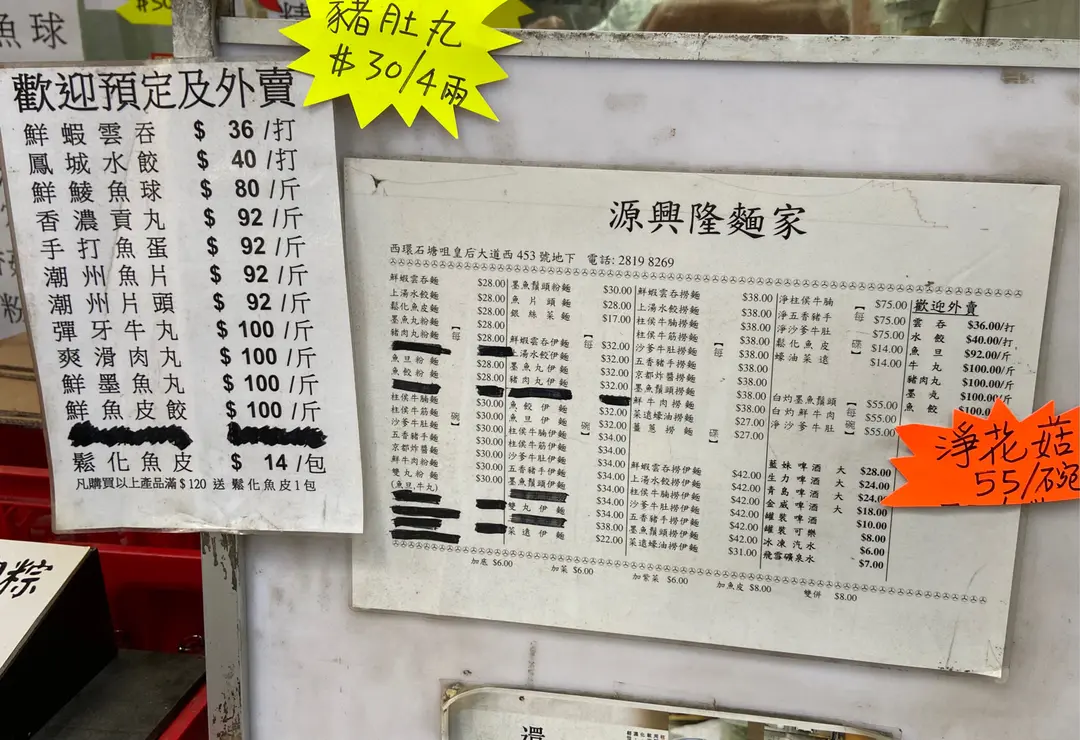 魚球
豬肚丸
$30/4兩
歡迎預定及外賣
鮮蝦雲吞 $ 36 /打
鳳城水餃 $ 40 /打
鮮鯪魚球 $ 80 /斤
香濃貢丸 $ 92 /斤
手打魚蛋 $ 92 /斤
潮州魚片 $ 92 /斤
潮州片頭 $ 92 /斤
彈牙牛丸 $ 100 /斤
爽滑肉丸 $ 100 /斤
鮮墨魚丸 $ 100 /斤
鮮魚皮餃 $ 100 /斤
鬆化魚皮 $ 14 /包
凡購買以上產品滿$120 送 鬆化魚皮1包
粽
源興隆麵家
西環石塘咀皇后大道西 453 號地下 電話: 2819 8269
鮮蝦雲吞麵 $28.00
上湯水餃麵 $28.00
鬆化魚皮麵 $28.00
墨魚丸粉麵 $28.00
豬肉丸粉麵 $28.00
魚旦粉麵 $28.00
魚餃粉麵 $28.00
柱侯牛腩麵 $30.00
柱侯牛筋麵 $30.00
沙爹牛肚麵 $30.00
五香豬手麵 $30.00
京都炸醬麵 $30.00
鮮牛肉粉麵 $30.00
雙丸粉麵 $30.00
(魚旦,牛丸)
[每
碗]
墨魚鬚頭粉麵 $30.00
魚片頭麵 $28.00
銀絲菜麵 $17.00
鮮蝦雲吞伊麵 $32.00
上湯水餃伊麵 $32.00
墨魚丸伊麵 $32.00
豬肉丸伊麵 $32.00
魚餃伊麵 $32.00
魚旦伊麵 $32.00
柱侯牛腩伊麵 $34.00
柱侯牛筋伊麵 $34.00
沙爹牛肚伊麵 $34.00
五香豬手伊麵 $34.00
雙丸伊麵 $34.00
菜遠伊麵 $22.00
[每
碗]
鮮蝦雲吞撈麵 $38.00
上湯水餃撈麵 $38.00
柱侯牛腩撈麵 $38.00
柱侯牛筋撈麵 $38.00
沙爹牛肚撈麵 $38.00
五香豬手撈麵 $38.00
京都炸醬撈麵 $38.00
墨魚鬚頭撈麵 $38.00
鮮牛肉撈麵 $38.00
菜遠蠔油撈麵 $27.00
薑蔥撈麵 $27.00
[每
碟]
鮮蝦雲吞撈伊麵 $42.00
上湯水餃撈伊麵 $42.00
柱侯牛腩撈伊麵 $42.00
柱侯牛筋撈伊麵 $42.00
沙爹牛肚撈伊麵 $42.00
五香豬手撈伊麵 $42.00
墨魚鬚頭撈伊麵 $42.00
菜遠蠔油撈伊麵 $31.00
淨柱侯牛腩 $75.00
淨五香豬手 $75.00
淨沙爹牛肚 $75.00
鬆化魚皮 $14.00
蠔油菜遠 $14.00
[每
碟]
白灼墨魚鬚頭 $55.00
白灼鮮牛肉 $55.00
淨沙爹牛肚 $55.00
[每
碗]
藍妹啤酒 大 $28.00
生力啤酒 大 $24.00
青島啤酒 大 $24.00
金威啤酒 大 $18.00
罐裝啤酒 $10.00
罐裝可樂 $8.00
冰凍汽水 $6.00
飛雪礦泉水 $7.00
歡迎外賣
雲吞 $36.00/打
水餃 $40.00/打
魚旦 $92.00/斤
牛丸 $100.00/斤
豬肉丸 $100.00/斤
墨丸 $100.00/斤
魚餃 $100.
加底 $6.00 加菜 $6.00 加紫菜 $6.00 加魚皮 $8.00 雙併 $8.00
淨花菇
55/碗
還